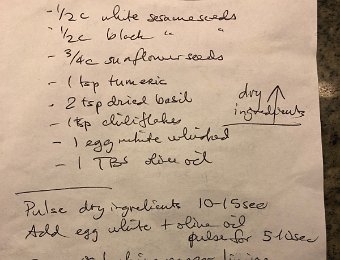 - 1/2 c white sesame seeds
- 1/2c black " "
- 3/4c sunflower seeds
- 1 tsp tumeric
- 2 tsp dried basil
- 1 tsp chiliflakes
dry ↑
ingredients
- 1 egg white whisked
- 1 TBS olive oil
Pulse dry ingredients 10-15sec
Add egg white + olive oil
pulse for 5-10sec